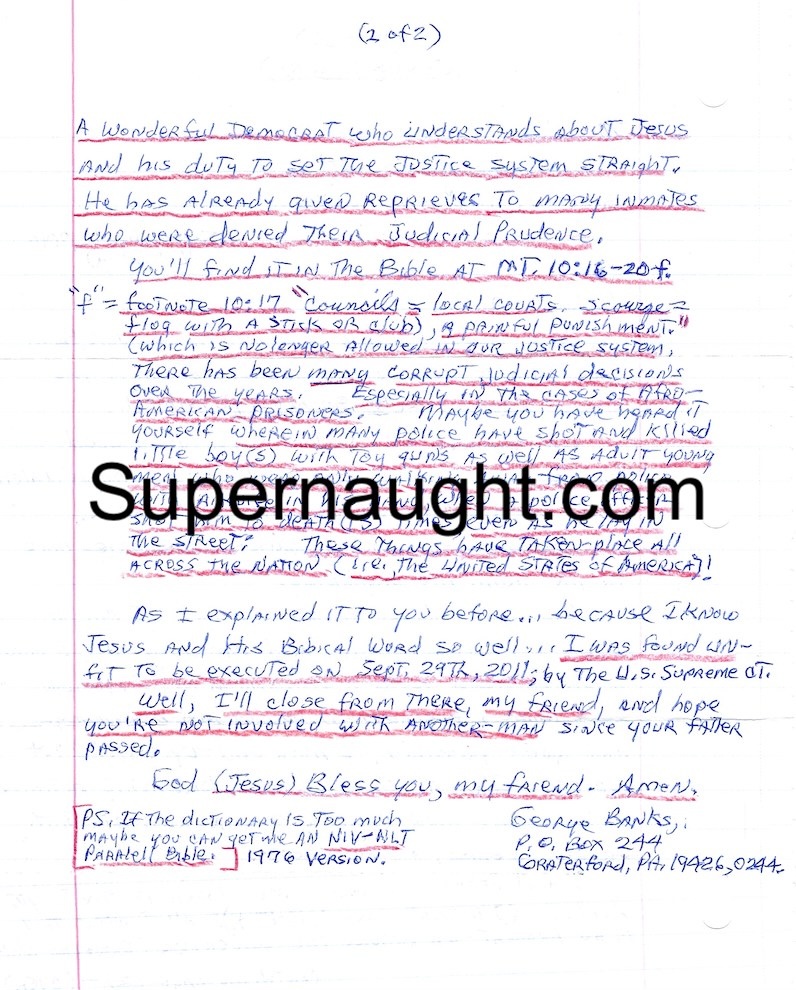 (2 of 2)
A Wonderful Democrat who understands about Jesus
and his duty to set the Justice System straight.
He has already given Reprieves to many inmates
who were denied Their Judicial Prudence.
You'll find it in The Bible at MT. 10:16-20f.
"f" = footnote 10:17 "Councils = local courts. Scourge =
flog with a stick or club), a painful punishment."
(which is no longer allowed in our justice system,
There has been many corrupt judicial decisions
over the years. Especially in the cases of Afro-
American prisoners. Maybe you have heard it
yourself wherein many police have shot and killed
little boy(s) with toy guns as well as adult young
Supernaught.com
shot him to death times even as he lay in
the street: These things have taken place all
across the nation (i.e., The United States of America)!
As I explained it to you before... because I know
Jesus and His Biblical Word so well... I was found un-
fit to be executed on Sept. 29th, 2011; by The U.S. Supreme CT.
Well, I'll close from there, my friend, and hope
you're not involved with another-man since your father
passed.
God (Jesus) Bless you, my friend. Amen.
PS. If the dictionary is too much
maybe you can get me an NIV-NLT
Paralell Bible. 1976 version.
George Banks,
P.O. Box 244
Graterford, PA, 19426,0244.